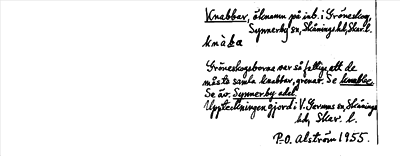 Knabbar, öknamn på inb. i Gröneskog,
Synnerby sn, Skånings hd, Skar. l.
knàba
Gröneskogsborna var så fattiga att de
måste samla knabbar, grenar. Se knabbe.
Se äv. Synnerby
Uppteckningen gjord i V. Gerums sn, Skånings
hd, Skar. l.
P.O. Alström 1955.